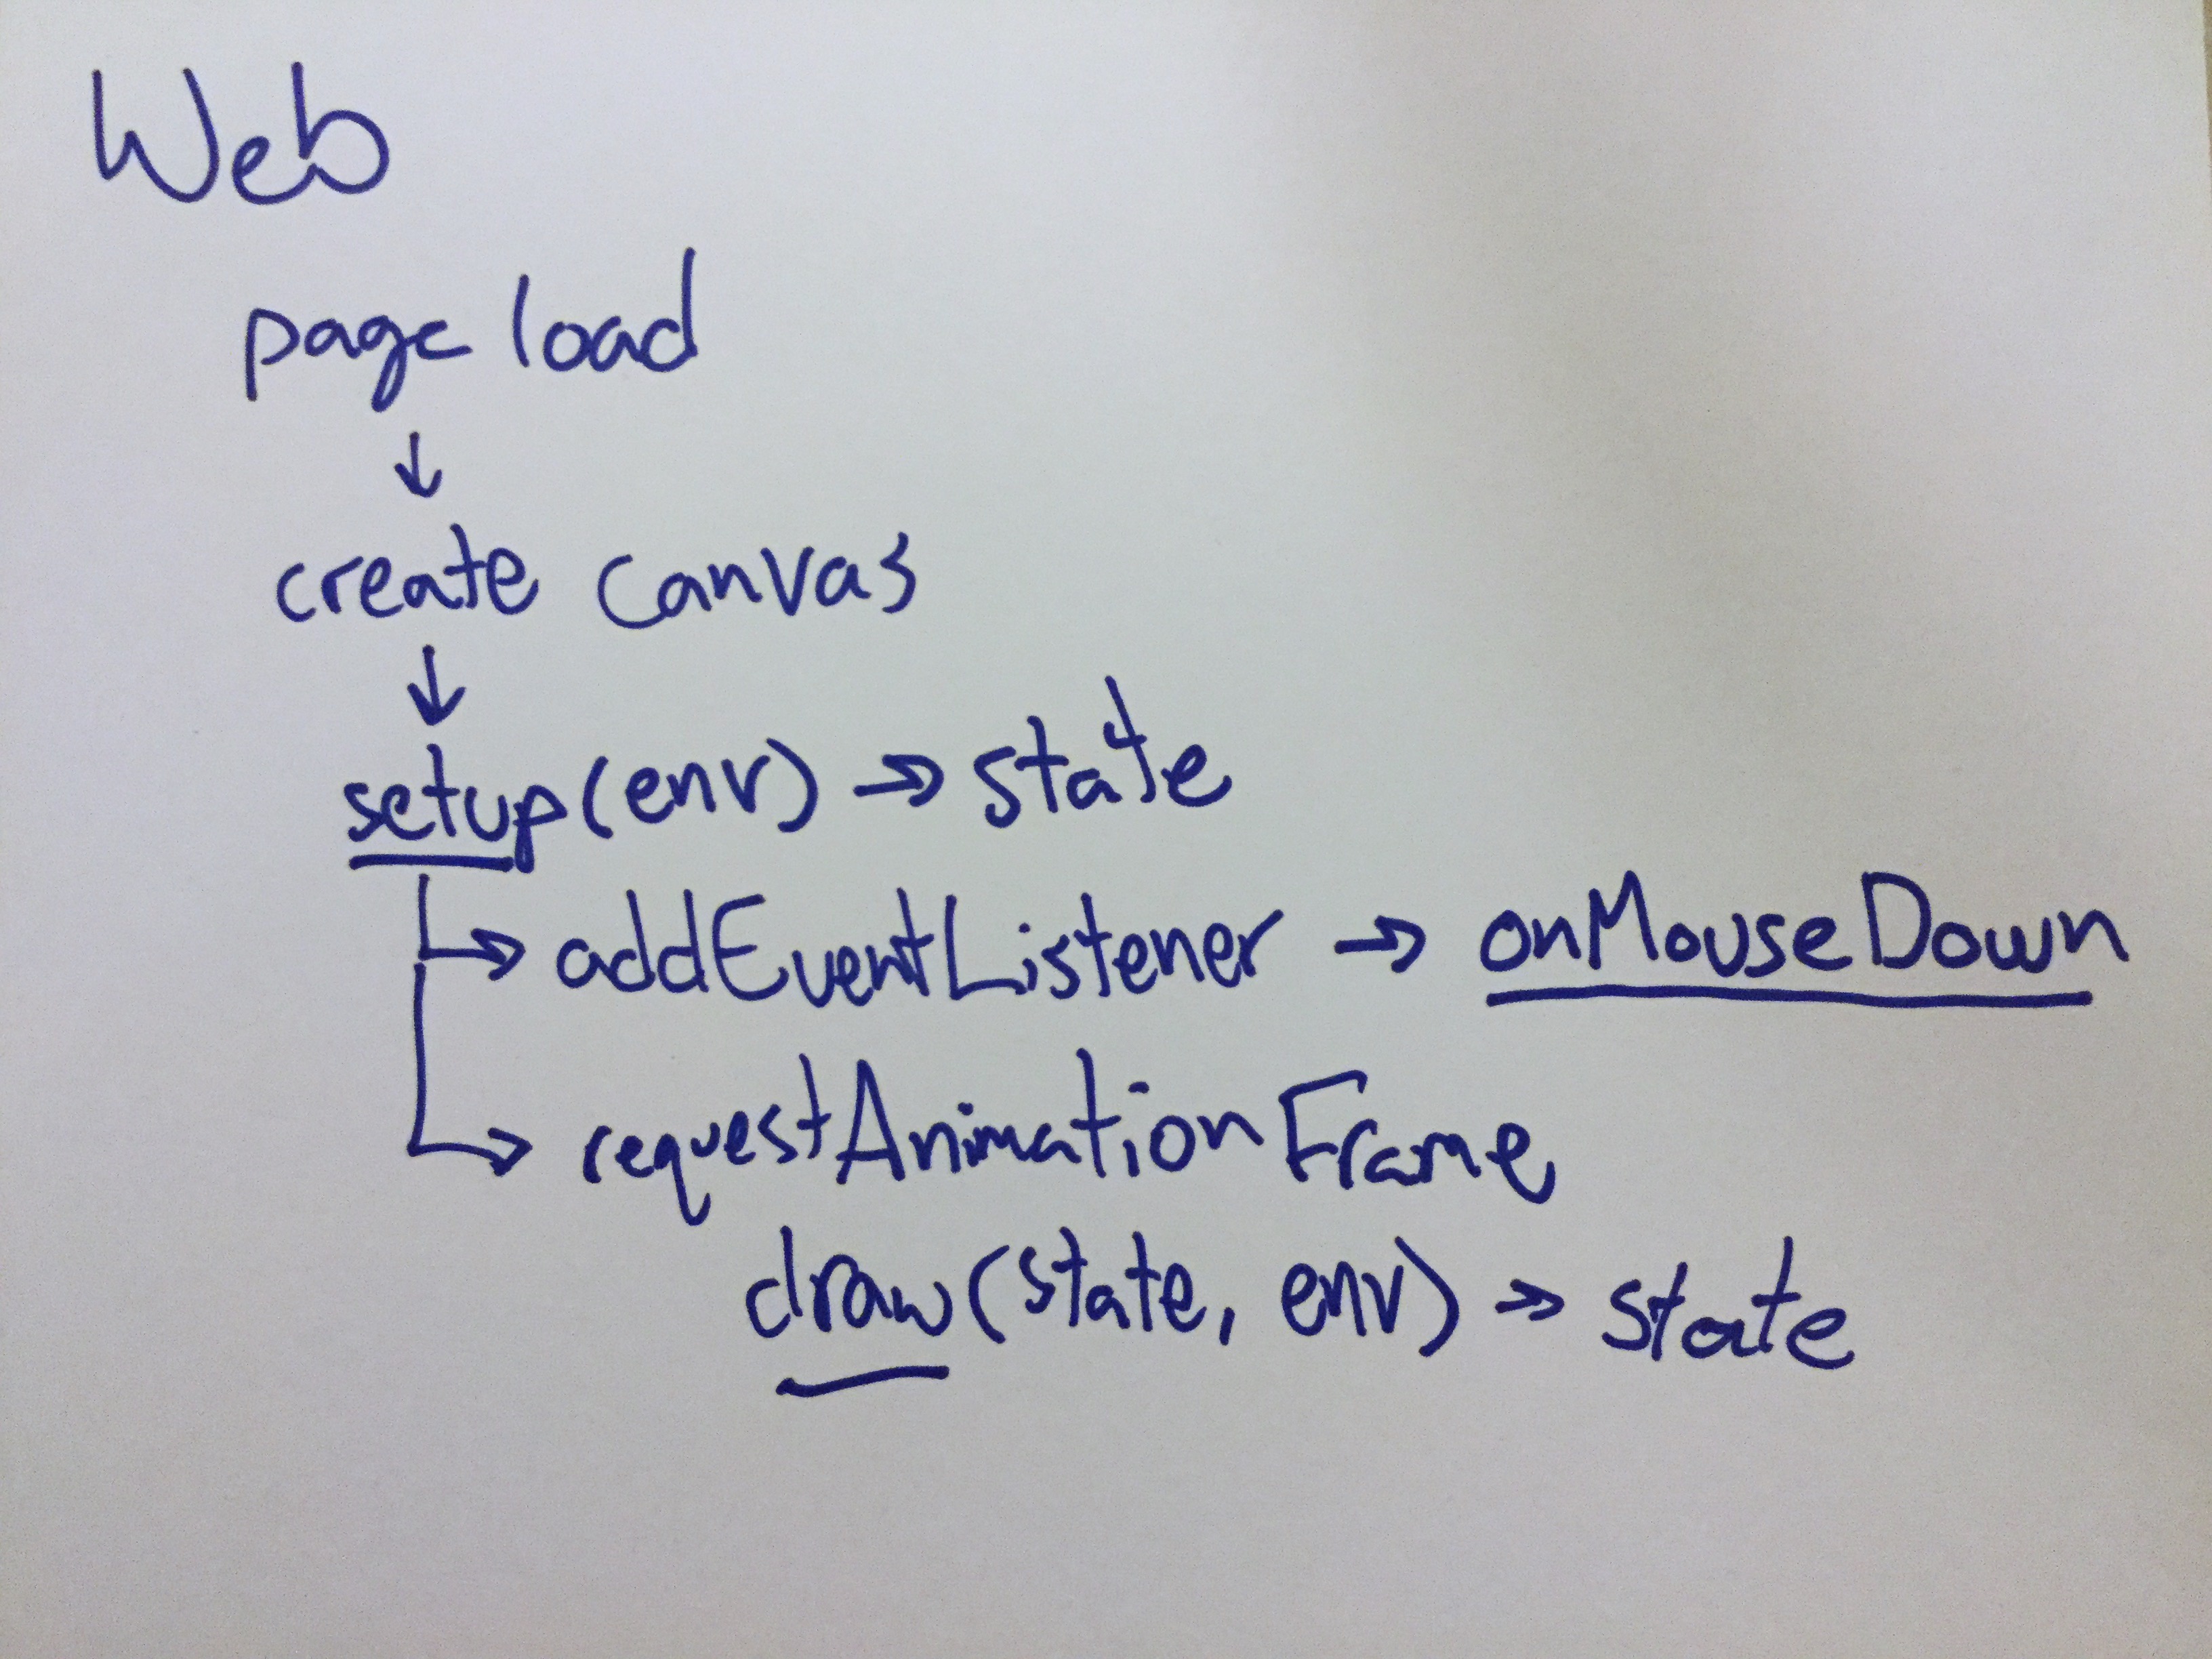 Web
page load
↓
create canvas
↓
setup(env) → state
↳ addEventListener → onMouseDown
↳ requestAnimationFrame
draw(state, env) → state